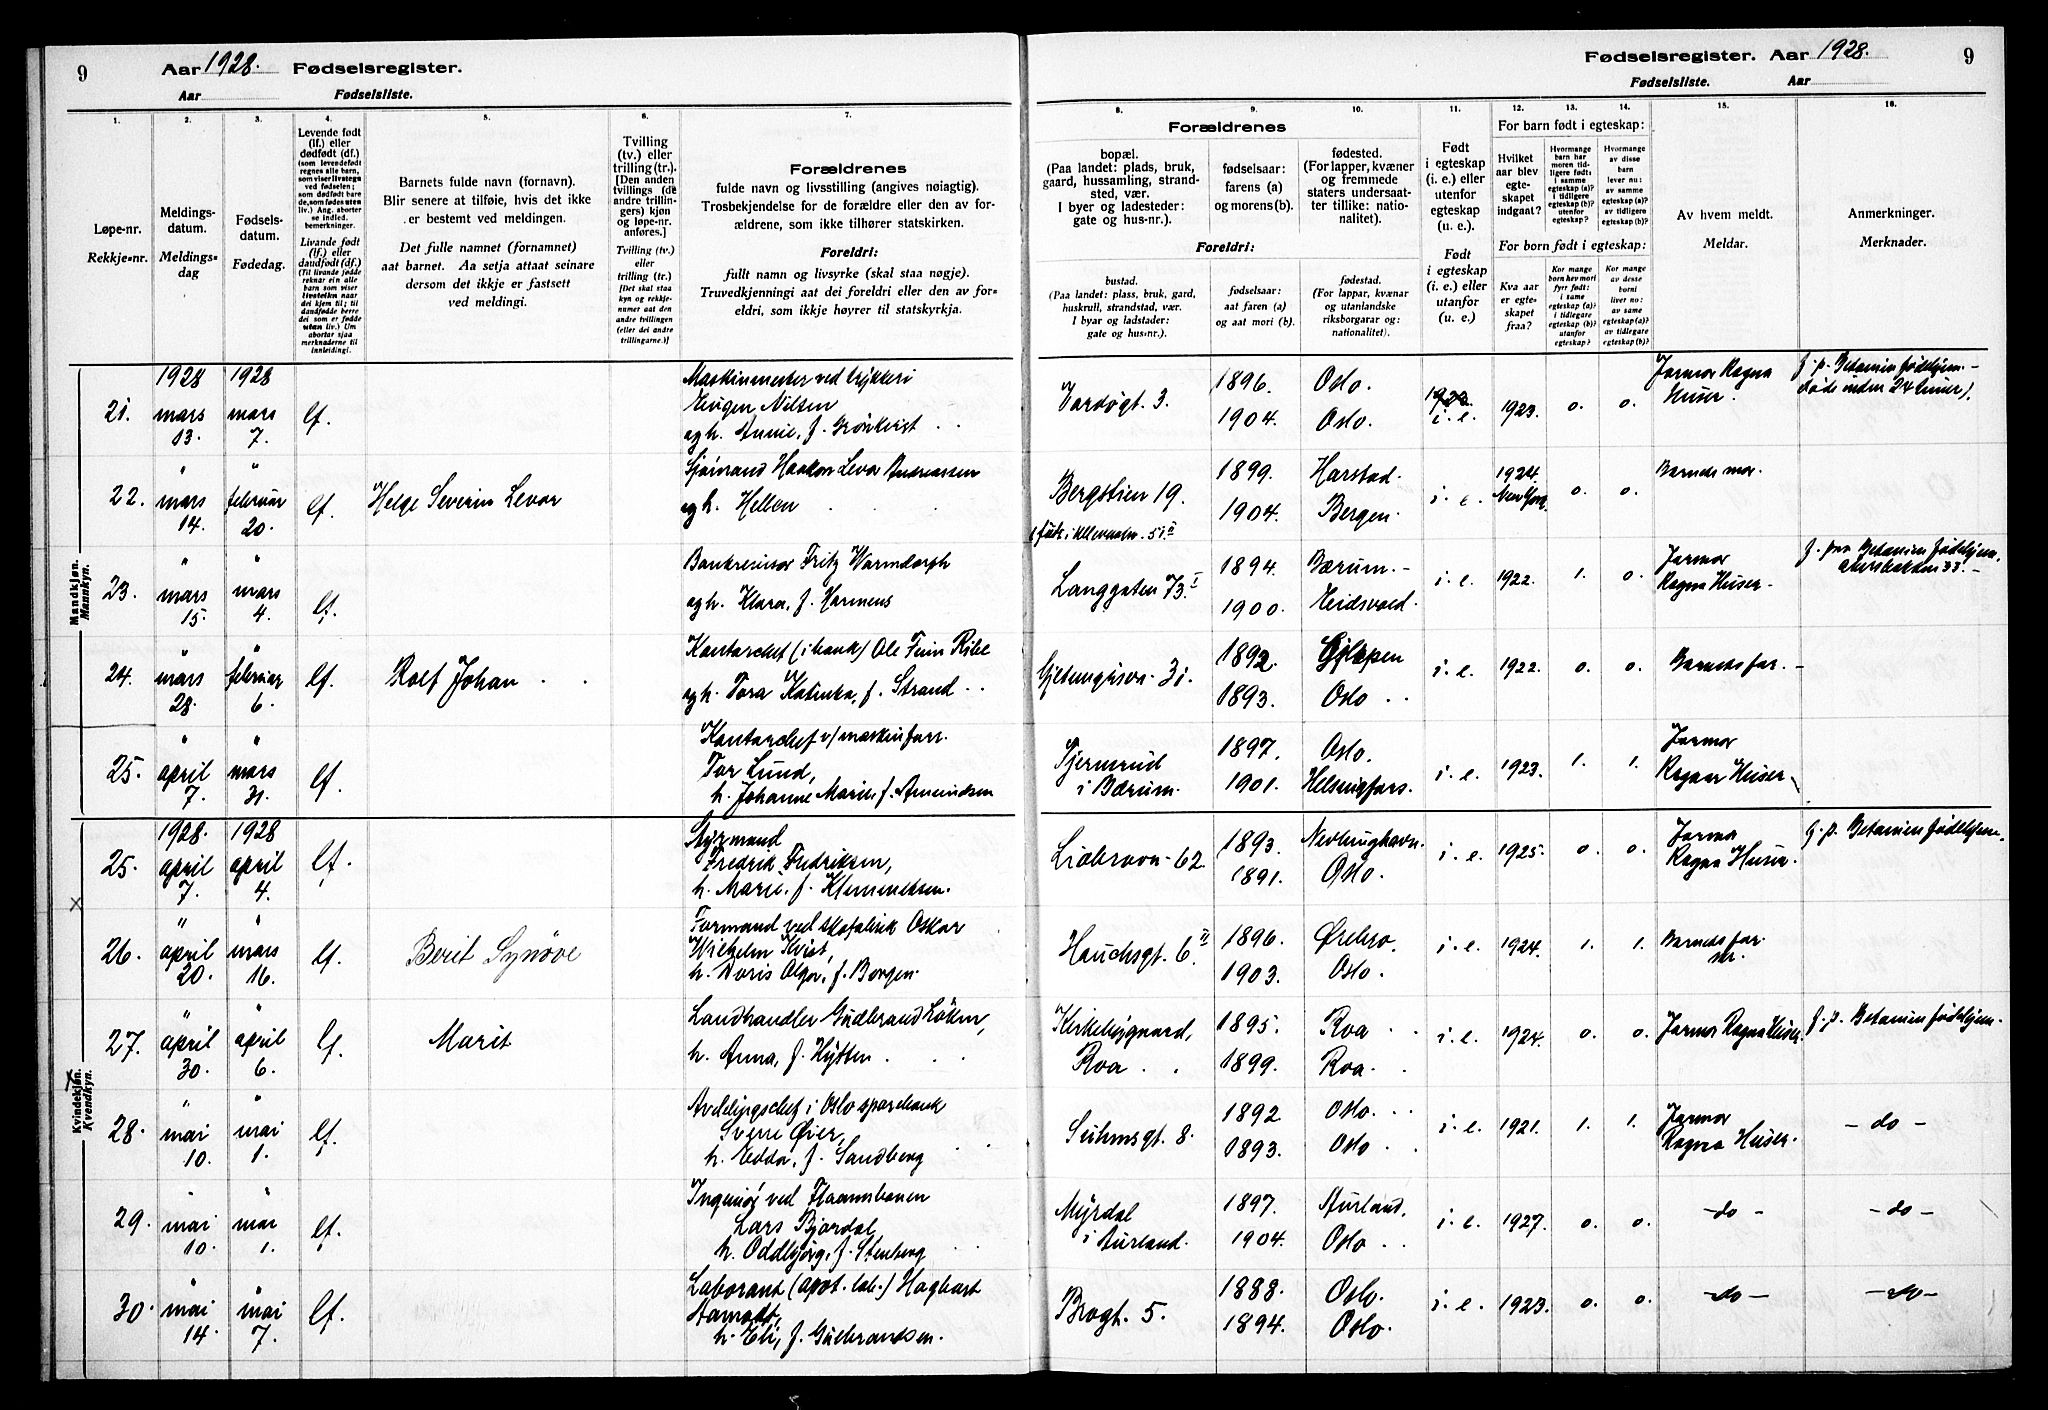 9
Aar 1928.
Fødselsregister.
Aar
Fødselsliste.
Fødselsregister. Aar 1928.
9
Fødselsliste.
Aar
1.
2.
3.
4.
5.
6.
7.
8.
9.
10.
11.
12.
13.
14.
15.
16.
Løpe-nr.
Rekkje-nr.
Meldings-
datum.
Meldings-
dag
Fødsels-
datum.
Fødedag.
Levende født
(lf.) eller
dødfødt (df.)
(som levendefødt
regnes alle barn,
som viser livstegn
ved fødselen;
som dødfødt bare
de, som fødes uten
liv.) Ang. aborter
se indled.
bemerkninger.
Livande født
(lf.) eller
daudfødt (df.)
(Til livande fødde
reknar ein alle
barn som viser
livsteikn naar
dei kjem til; til
daudfødde berre
dei som er fødde
utan liv.) Um
abortar sjaa
merknaderne til
innleidingi.
Barnets fulde navn (fornavn).
Blir senere at tilføie, hvis det ikke
er bestemt ved meldingen.
Det fulle namnet (fornamnet)
aat barnet. Aa setja attaat seinare
dersom det ikkje er fastsett
ved meldingi.
Tvilling
(tv.) eller
trilling (tr.).
[Den anden
tvillings (de
andre trillin-
gers) kjøn
og løpe-nr.
anføres.]
Tvilling (tv.)
eller
trilling (tr.)
[Det skal staa
kyn og rekkje-
numer aat den
andre tvillingen
(eller dei andre
trillingarne.)]
Forældrenes
fulde navn og livsstilling (angives nøiagtig).
Trosbekjendelse for de forældre eller den av for-
ældrene, som ikke tilhører statskirken.
Foreldri:
fullt namn og livsyrke (skal staa nøgje).
Truvedkjenningi aat dei foreldri eller den av for-
eldri, som ikkje høyrer til statskyrkja.
Forældrenes
bopæl.
(Paa landet: plads, bruk,
gaard, hussamling, strand-
sted, vær.
I byer og ladesteder:
gate og hus-nr.).
fødselsaar:
farens (a)
og morens (b).
fødested.
(For lapper, kvæner
og fremmede
staters undersaat-
ter tillike: natio-
nalitet).
Foreldri:
bustad.
(Paa landet: plass, bruk, gard,
huskrull, strandstad, vær.
I byar og ladstader:
gate og hus-nr.).
fødselsaar:
aat faren (a)
og aat mori (b).
fødestad.
(For lappar, kvænar
og utanlandske
riksborgarar og:
nationalitet).
Født
i egteskap
(i. e.) eller
utenfor
egteskap
(u. e.).
Født
i egteskap
(i. e.) eller
utanfor
(u. e.).
For barn født i egteskap:
Hvilket
aar blev
egte-
skapet
indgaat?
Hvormange
barn har
moren tid-
ligere født:
i samme
egteskap (a)?
i tidligere
egteskap (b)?
utenfor
egteskap?
Hvormange
av disse
barn
lever nu:
av samme
egteskap (a)?
av tidligere
egteskap (b)?
For born født i egteskap:
Kva aar
er egte-
skapet
fraa?
Kor mange
born hev mori
fyrr født:
i same
egteskap (a)?
i tidlegare
egteskap (b)?
utanfor
egteskap?
Kor mange
av desse
borni
liver no:
av same
egteskap (a)?
av tidlegare
egteskap (b)?
Av hvem meldt.
Meldar.
Anmerkninger.
Merknader.
Mandkjøn.
Mannkyn.
21. 1928 mars 13. 1928 mars 7. lf. Maskinmester ved trykkeri
Eugen Nilsen
og h. Annie, f. Grönkvist
Vardøgt. 3. 1896. 1904. Oslo. Oslo. i. e. 1923. 0. 0. Jormor Ragna Huser. f. p. Betanien fødehjem. -
døde inden 24 timer).
22. " mars 14. " februar 20. lf. Helge Severin Levor
Sjømand Haakon Levor Andreassen
og h. Hellen
Bergstien 19. 1899. 1904. Harstad. Bergen. i. e. 1924. New York 0. 0. Barnets mor.
23. " mars 15. " mars 4. lf. Bankrevisor Fritz Warmdorph
og h. Klara, f. Harmens
Langgaten 73. I 1894. 1900. Bærum. - Eidsvold. i. e. 1922. 1. 0. Jormor
Ragna Huser. f. paa Betanien fødehjem,
Akersbakken 33. -
24. " mars 28. " februar 6. lf. Rolf Johan
Kontorchef (i bank) Ole Finn Ribe
og h. Tora Katinka, f. Strand
31. 1892. 1893. Gjerpen Oslo i. e. 1922. 0. 0. Barnets far. -
25. " april 7. " mars 31. lf. Kontorchef v/ maskinforr.
Tor Lund,
h. Johanne Marie, f. Amundsen
Tjernsrud
i Bærum. 1897. 1901. Oslo. Helsingfors. i. e. 1923. 1. 1. Jormor
Ragna Huser
Kvindekjøn.
Kvendkyn.
25. 1928. april 7. 1928 april 4. lf. Styrmand
Fredrik Fredriksen,
h. Marie, f. Klemmetsen.
62. 1893. 1891. Nevlunghavn. Oslo. i. e. 1925. 0. 0. Jormor
Ragna Huser. f. p. Betanien fødehjem.
x
26. " april 20. " mars 16. lf. Berit Synøve
Formand ved skofabrik Oskar
Wilhelm Kvist,
h. Doris Olga, f. Borgen.
Hauchsgt. 6. II 1896. 1903. Örebro. Oslo. i. e. 1924. 1. 1. Barnets far.
27. " april 30. " april 6. lf. Marit
Landhandler Gudbrand Löken,
h. Anna, f. Hytten
Kirkebygaard,
Roa 1895. 1899. Roa Roa. i. e. 1924. 0. 0. Jormor Ragna Huser. f. p. Betanien fødehjem.
x
28. " mai 10. " mai 1. lf. Avdelingschef i Oslo sparebank
Sverre Øver,
h. Edda, f. Sandberg
Suhmsgt. 8. 1892 1893. Oslo. Oslo i. e. 1921. 1. 1. Jormor
Ragna Huser. - do -
29. " mai 10. " mai 1. lf. Ingeniör ved Flaamsbanen
Lars Bjordal,
h. Oddbjörg, f. Stenberg
Myrdal
i Aurland. 1897. 1904. Aurland. Oslo i. e. 1927. 0. 0. - do - - do -
30. " mai 14. " mai 7. lf. Laborant (apot. lab.) Hagbart
Aamodt,
h. Eli, f. Gudbrandsen.
Brogt. 5. 1888. 1894. Oslo. Oslo. i. e. 1923. 0. 0. - do - - do -